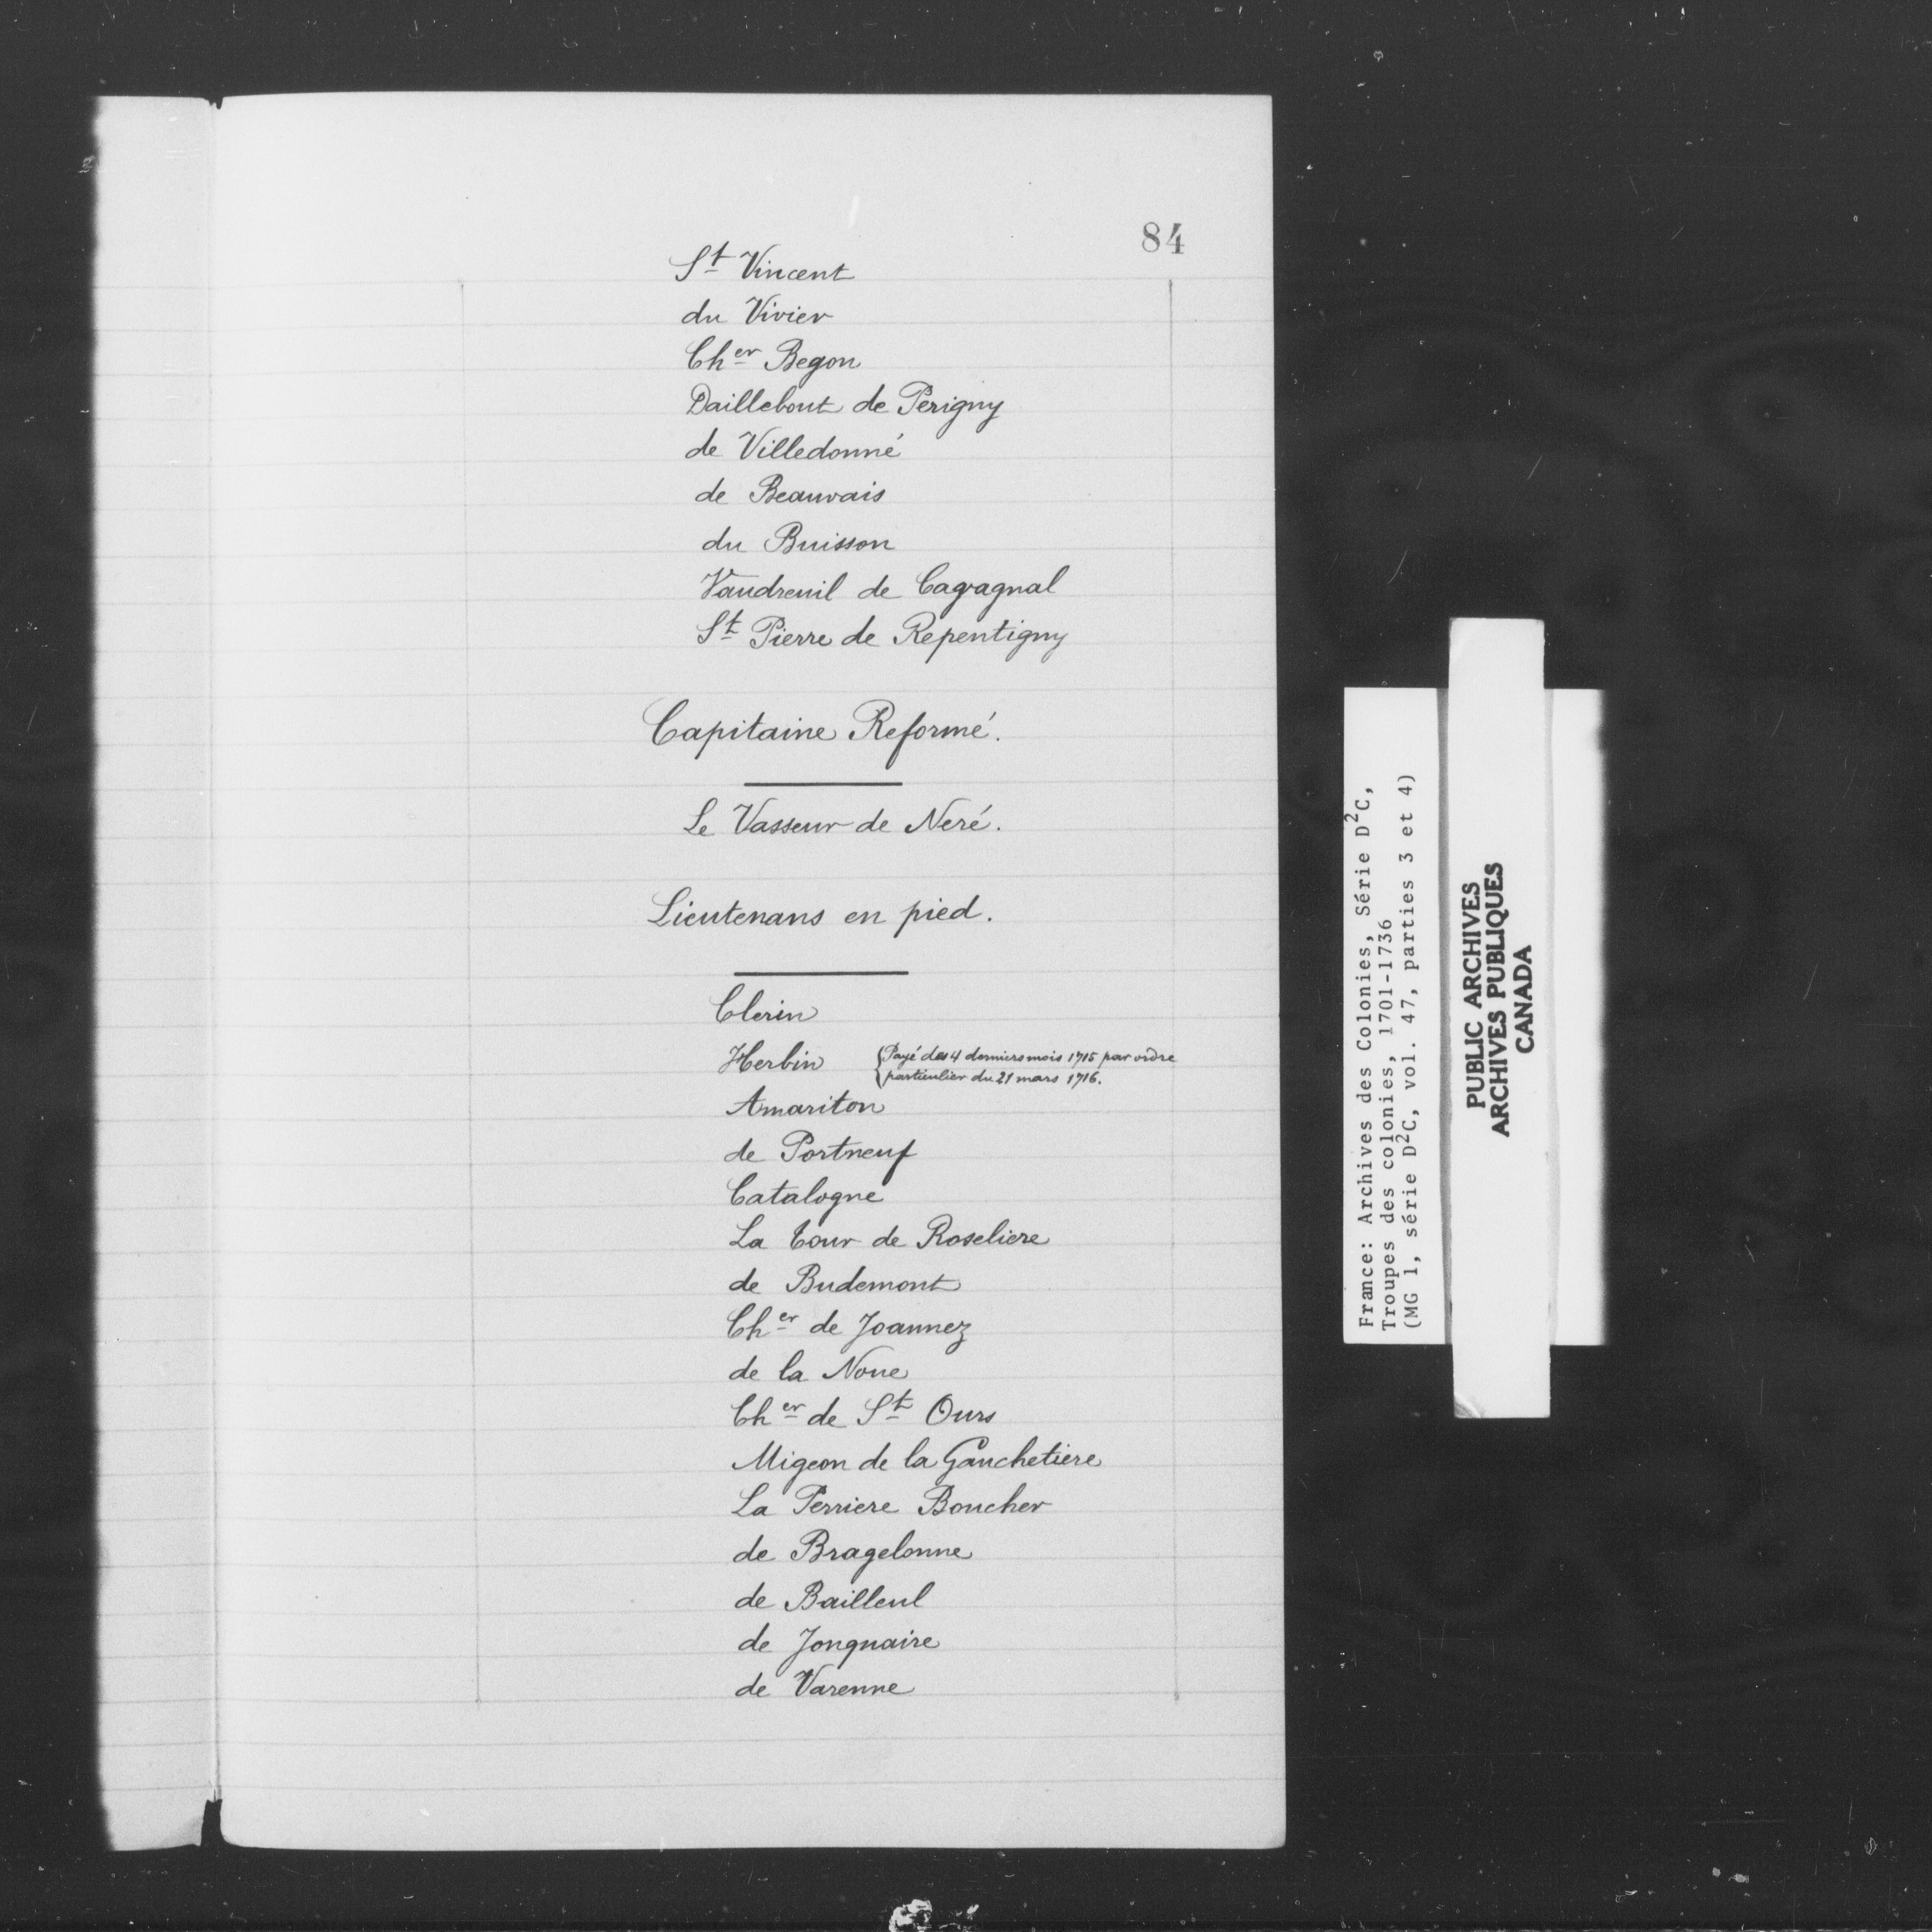 84
St Vincent
du Vivier
Cher Begon
Daillebout de Perigny
de Villedonné
de Beauvais
du Buisson
Vaudreuil de Cavagnal
St Pierre de Repentigny
Capitaine Reformé.
Le Vasseur de Neré.
Lieutenans en pied.
Clerin
Herbin { Payé des 4 derniers mois 1715 par ordre
particulier du 21 mars 1716.
Amariton
de Portneuf
Catalogne
La Tour de Roseliere
de Budemont
Cher de Joannez
de la Noue
Cher de St Ours
Migeon de la Gauchetiere
La Perriere Boucher
de Bragelonne
de Bailleul
de Jonquaire
de Varenne
France: Archives des Colonies, Série D²C,
Troupes des colonies, 1701-1736
(MG 1, série D²C, vol. 47, parties 3 et 4)
PUBLIC ARCHIVES
ARCHIVES PUBLIQUES
CANADA